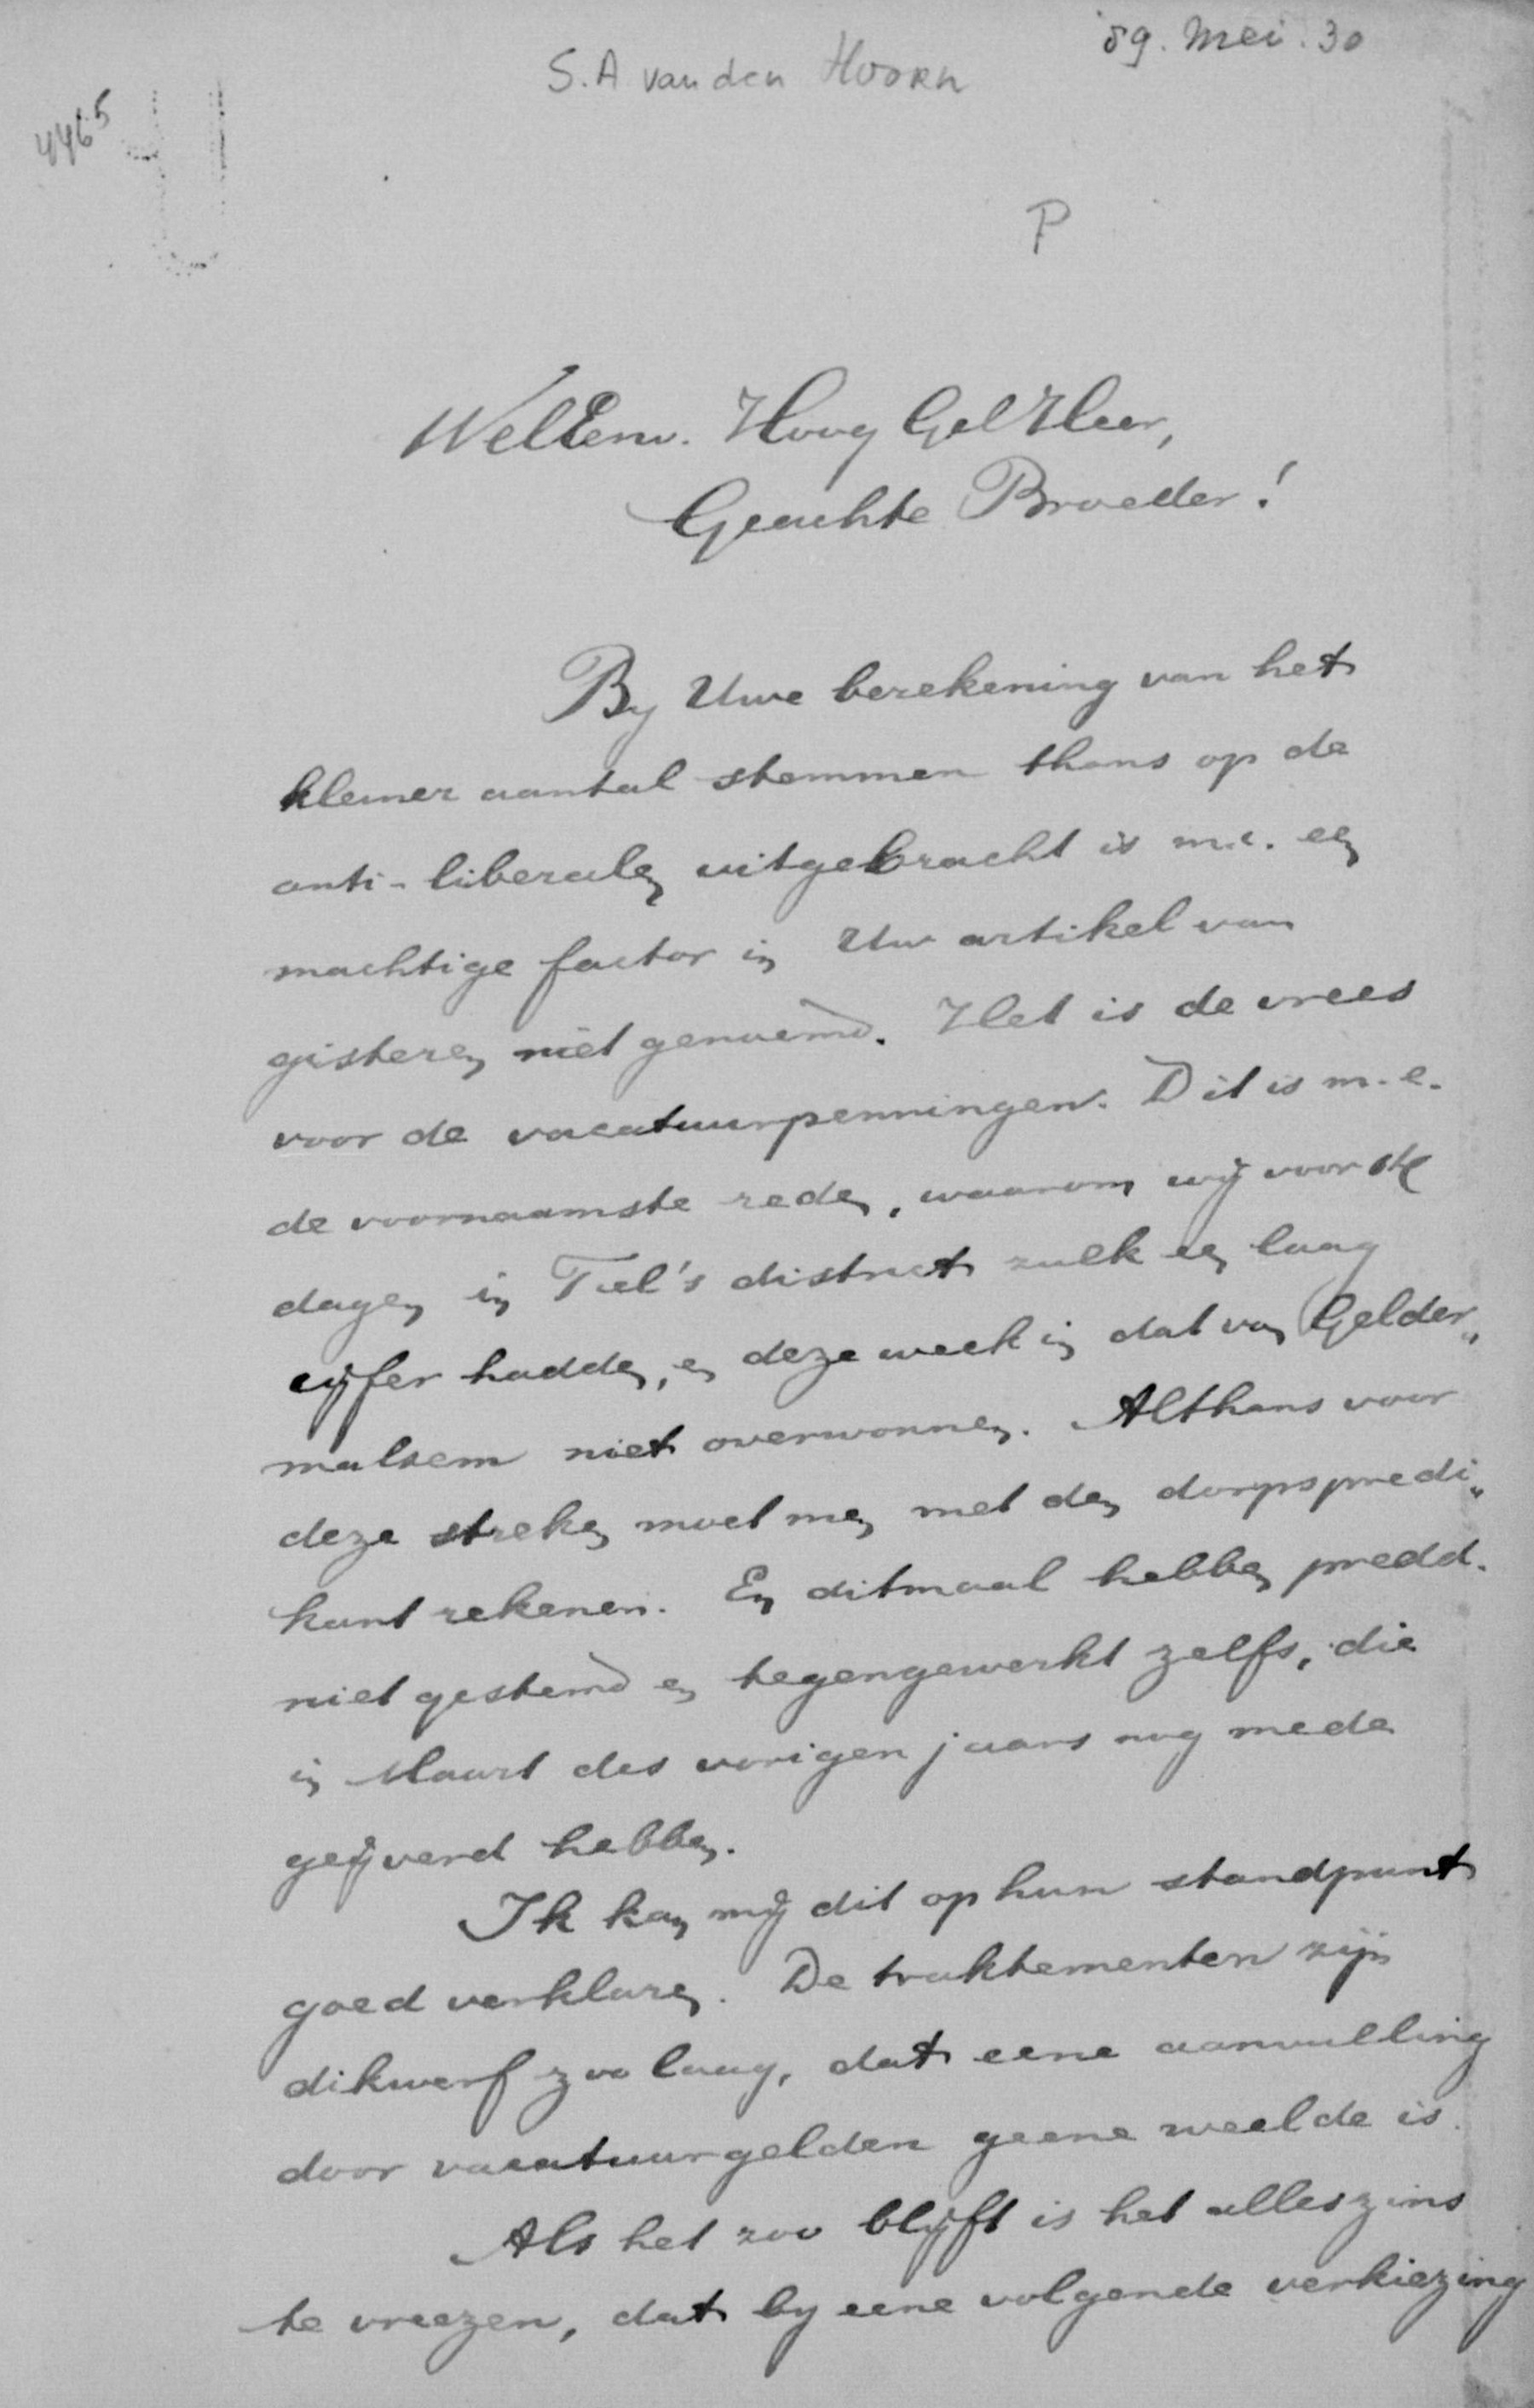 '89. Mei. 30
S. A van den Hoorn
4465
P
WelEerw. Hoog Gel Heer,
Geachte Broeder!
By Uwe berekening van het
kleiner aantal stemmen thans op de
anti-liberalen uitgebracht is m.i. een
machtige factor in Uw artikel van
gisteren niet genoemd. Het is de vrees
voor de vacatuurpenningen. Dit is m.i.
de voornaamste reden, waarom wij voor ste
dagen in Tiel's district zulk een laag
cijfer hadden, en deze week in dat van Gelder„
malsem niet overwonnen. Althans voor
deze streken moet men met den dorpspredi„
kant rekenen. En ditmaal hebben predd.
niet gestemd en tegengewerkt zelfs, die
in Maart des vorigen jaars nog mede
geijverd hebben.
Ik kan mij dit op hun standpunt
goed verklaren. De traktementen zijn
dikwerf zoo laag, dat eene aanvulling
door vacatuurgelden geene weelde is.
Als het zoo blijft is het alleszins
te vreezen, dat by eene volgende verkiezing